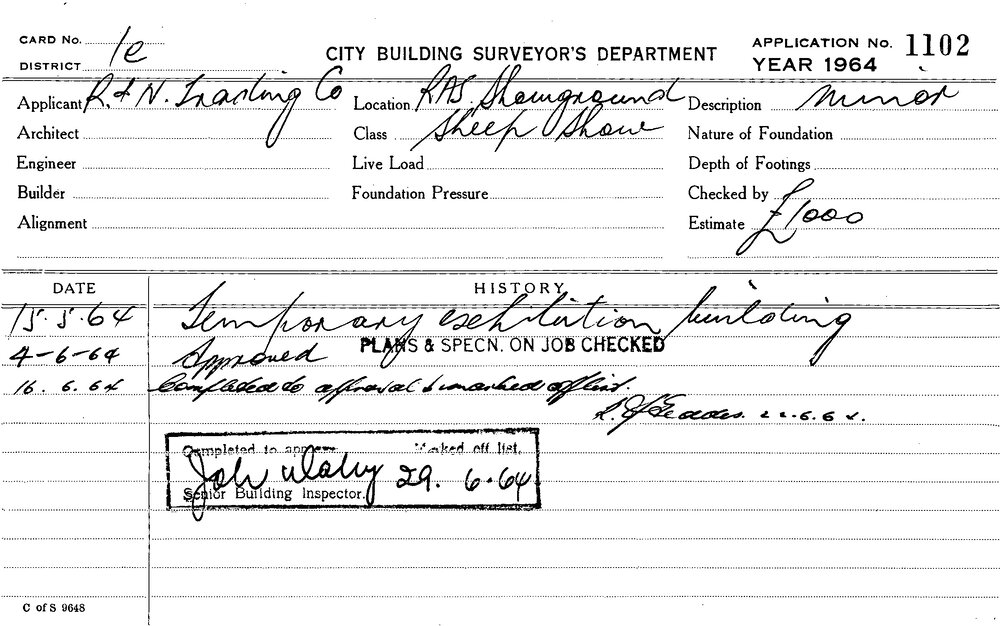 CARD No. 1e
DISTRICT
CITY BUILDING SURVEYOR'S DEPARTMENT
APPLICATION No. 1102
YEAR 1964
Applicant R. & N. Trading Co Location RAS. Showground Description Minor
Architect Class Sheep Show Nature of Foundation
Engineer Live Load Depth of Footings
Builder Foundation Pressure Checked by
Alignment Estimate £1000
DATE HISTORY
15.5.64 Temporary exhibition building
4-6-64 Approved PLANS & SPECN. ON JOB CHECKED
16.6.64 Completed to approval & marked off list.
22.6.64.
Completed to approval Marked off list.
29.6.64
Senior Building Inspector.
C of S 9648